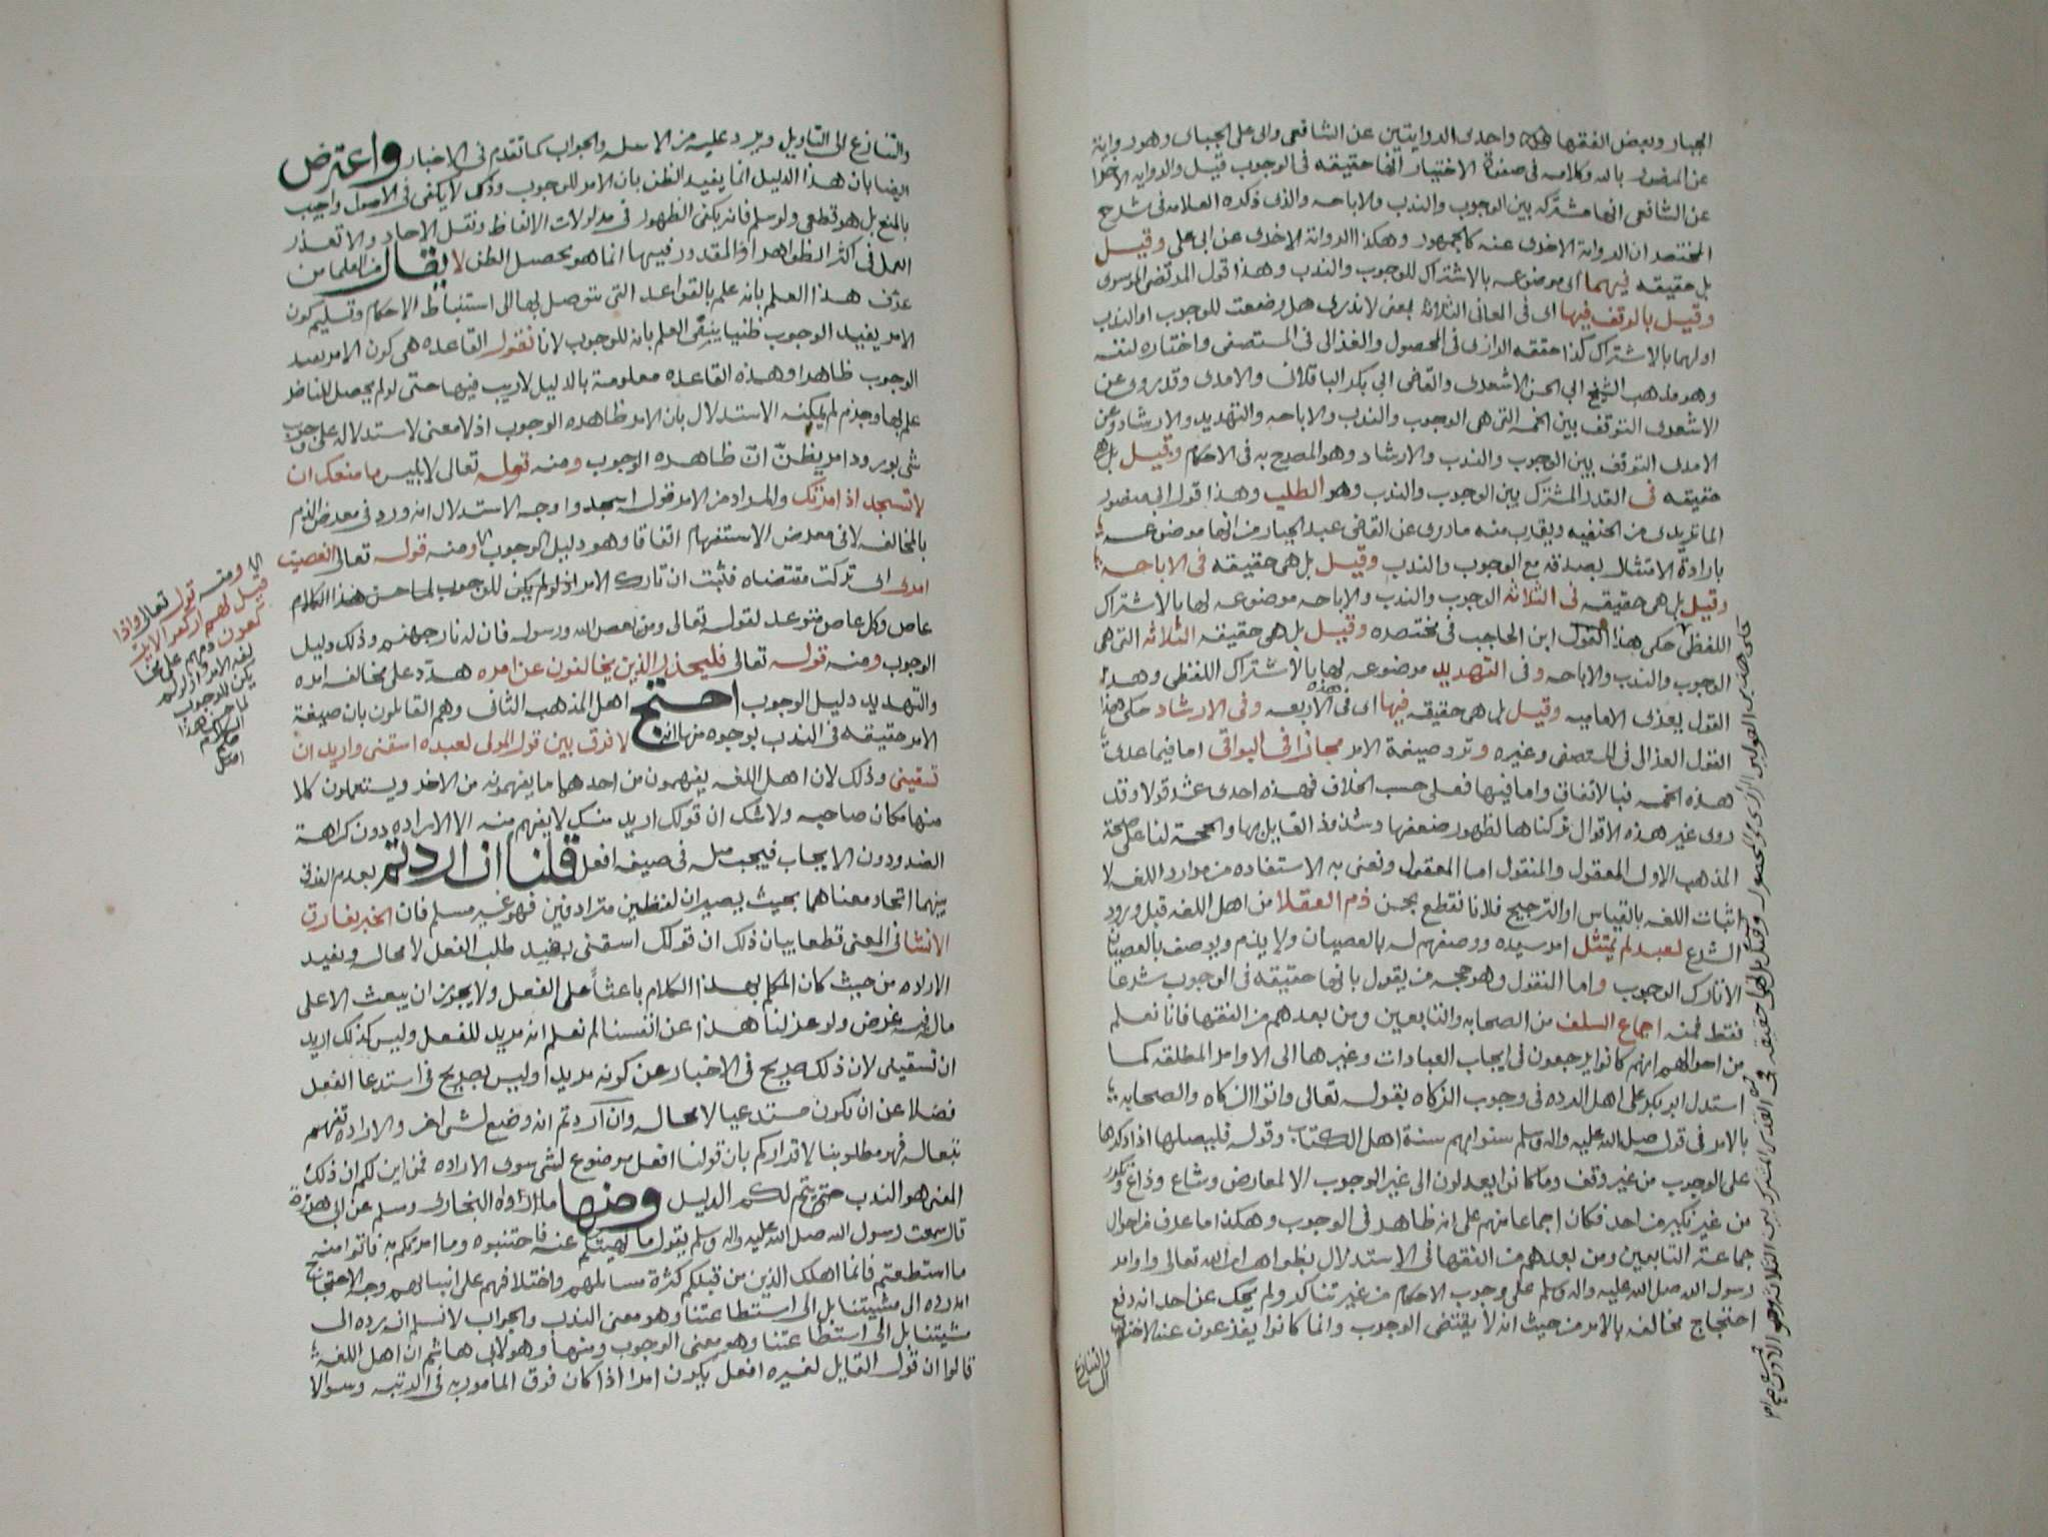 الجبار وبعض الفقها واحدى الروايتين عن الشافعى وابى على الجباى وهو رواية
عن المنصور بالله وكلامه فى صفوة الاختيار انها حقيقه فى الوجوب قيل والروايه الاخرا
عن الشافعى انها مشتركه بين الوجوب والندب والاباحه والذى ذكره العلامه فى شرح
المختصر ان الرواية الاخرى عنه كالجمهور وهكذا الرواية الاخرى عن ابى على وقيـل
بل حقيقه فيهما اى موضوعه بالاشتراك للوجوب والندب وهذا قول المرتضى الموسوى
وقيـل بالوقف فيها اى فى المعانى الثلاثة بمعنى لا ندرى هل وضعت للوجوب او الندب
او لهما بالاشتراك كذا حققه الرازى فى المحصول والغزالى فى المستصفى واختاره لنفسه
وهو مذهب الشيخ ابي الحسن الاشعرى والقاضى ابي بكر الباقلانى والامدى وقد روى عن
الاشعرى التوقف بين الخمسه التى هى الوجوب والندب والاباحه والتهديد والارشاد وعن
الامدى التوقف بين الوجوب والندب والارشاد وهو المصرح به فى الاحكام وقيل بل هى
حقيقه فى القدر المشترك بين الوجوب والندب وهو الطلب وهذا قول ابى منصور
الماتريدى من الحنفيه ويقارب منه ما روى عن القاضى عبد الجبار من انها موضوعه
بارادة الامتثال بصدقه مع الوجوب والندب وقيـل بل هى حقيقه فى الاباحه
وقيل بل هى حقيقه فى الثلاثه الوجوب والندب والاباحه موضوعه لها بالاشتراك
اللفظى حكى هذا القول ابن الحاجب فى مختصره وقيـل بل هى حقيقه الثلاثه التى هى
الوجوب والندب والاباحه وفى التهديد موضوعه لها بالاشتراك اللفظى وهذا
القول يعزى الاماميه وقيل بل هى حقيقه فيها اى فى هذه الاربعه وفى الارشاد حكى هذا
القول الغزالى فى المستصفى وغيره وترد صيغة الامر مجازا فى البواقى اما فيما عدى
هذه الخمسه فبالاتفاق واما فيها فعلى حسب الخلاف فهذه احدى عشر قولا وقد
روى غير هذه الاقوال تركناها لظهور ضعفها وشذوذ القايل بها والحجة لنا على صحة
المذهب الاول المعقول والمنقول اما المعقول ونعنى به الاستفاده من موارد اللغه لا
اثبات اللغه بالقياس او الترجيح فلانا نقطع بحسن ذم العقلا من اهل اللغه قبل ورود
الشرع لعبد لم يمتثل امر سيده ووصفهم له بالعصيان ولا يذم ويوصف بالعصيان
الا تارك الوجوب واما النقول وهو حجه من يقول بانها حقيقه فى الوجوب شرعا
فقط فمنه اجماع السلف من الصحابه والتابعين ومن بعدهم من الفقها فانا نعلم
من احوالهم انهم كانوا يرجعون فى ايجاب العبادات وغيرها الى الاوامر المطلقه كما
استدل ابو بكر على اهل الرده فى وجوب الزكاه بقوله تعالى واتوا الزكاه والصحابه
بالامر فى قوله صلى الله عليه واله وسلم سنوا بهم سنة اهل الكتاب وقوله فليصلها اذا ذكرها
على الوجوب من غير وقف وما كانوا يعدلون الى غير الوجوب الا لمعارض وشاع وذاع وتكرر
من غير نكير من احد فكان اجماعا منهم على انه ظاهر فى الوجوب وهكذا ما عرف من احوال
جماعة التابعين ومن بعدهم من الفقها فى الاستدلال بظواهر اوامر الله تعالى واوامر
رسول الله صلى الله عليه واله وسلم على وجوب الاحكام من غير تناكر ولم يحك عن احد انه دفع
احتجاج مخالفه بالامر من حيث انه لا يقتضى الوجوب وانما كانوا يفزعون عند الاختلاف
والتنازع
الى
وقيل بل هى حقيقه فى القدر المشترك بين الثلاثه وهو الاذن
والتنازع الى التاويل ويرد عليه من الاسله والجواب كما تقدم فى الاخبار واعترض
ايضا بان هذا الدليل انما يفيد الظن بان الامر للوجوب وذلك لا يكفى فى الاصول واجيب
بالمنع بل هو قطعى ولو سلم فانه يكفى الظهور فى مدلولات الالفاظ ونقل الاحاد والا تعذر
العمل فى اكثر الظواهر اذ المقدور فيها انما هو تحصيل الظن لا يقال من العلما من
عرف هذا العلم بانه علم بالقواعد التى يتوصل بها الى استنباط الاحكام وتسليم كون
الامر يفيد الوجوب ظنيا ينفى العلم بانه للوجوب لانا نقول القاعده هى كون الامر يفيد
الوجوب ظاهرا وهذه القاعده معلومة بالدليل لا ريب فيها حتى لو لم يحصل للناظر
علم بها وجزم لم يمكنه الاستدلال بان الامر ظاهره الوجوب اذ لا معنى لاستدلاله على وجوب
شى بورود امر يظنّ انّ ظاهره الوجوب ومنه قوله تعالى لابليس ما منعك ان
لا تسجد اذ امرتك والمراد من الامر قوله اسجدوا وجه الاستدلال انه ورد فى معرض الذم
بالمخالفه لا فى معرض الاستفهام اتفاقا وهو دليل الوجوب ومنه قوله تعالى افعصيت
امرى اى تركت مقتضاه فثبت ان تارك الامر اذ لو لم يكن للوجوب لما حسن هذا الكلام
عاص وكل عاص متوعد لقوله تعالى ومن يعص الله ورسوله فان له نار جهنم وذلك دليل
الوجوب ومنه قوله تعالى فليحذر الذين يخالفون عن امره هدد على مخالفه امره
والتهديد دليل الوجوب احتج اهل المذهب الثانى وهم القايلون بان صيغة
الامر حقيقه فى الندب بوجوه منها انه لا فرق بين قول المولى لعبده اسقنى واريد ان
تسقينى وذلك لان اهل اللغه يفهمون من احدهما ما يفهمونه من الاخر ويستعملون كلا
منهما مكان صاحبه ولا شك ان قولك اريد منك لا يفهم منه الا الاراده دون كراهة
الضد ودون الايجاب فيجب مثله فى صيغه افعل قلنا ان اردتم بعدم الفرق
بينهما اتحاد معناهما بحيث يصيران لفظين مترادفين فهو غير مسلم فان الخبر يفارق
الانشا فى المعنى قطعا بيان ذلك ان قولك اسقنى يفيد طلب الفعل لا محاله ويفيد
الاراده من حيث كان المتكلم بهذا الكلام باعثاً على الفعل ولا يجوز ان يبعث الاعلى
ماله فيه غرض ولو عزلنا هذا عن انفسنا لم نعلم انه مريد للفعل وليس كذلك اريد
ان تسقينى لان ذلك صريح فى الاخبار عن كونه مريدا وليس بصريح فى استدعا الفعل
فضلا عن ان يكون مستدعيا لا محاله وان اردتم انه وضع لشى اخر والاراده تفهم
تبعا له فهو مطلوبنا لاقراركم بان قولنا افعل موضوع لشى سوى الاراده فمن اين لكم ان ذلك
المعنى هو الندب حتى يتم لكم الدليل ومنها ما رواه البخارى ومسلم عن ابى هريرة
قال سمعت رسول الله صلى الله عليه واله وسلم يقول ما نهيتكم عنه فاجتنبوه وما امرتكم به فاتوا منه
ما استطعتم فانما اهلك الذين من قبلكم كثرة مسايلهم واختلافهم على انبيائهم وجه الاحتجاج
انه رده الى مشيتنا بل الى استطاعتنا وهو معنى الندب والجواب لا نسلم انه رده الى
مشيتنا بل الى استطاعتنا وهو معنى الوجوب ومنها وهو لابى هاشم ان اهل اللغه
قالوا ان قول القايل لغيره افعل يكون امرا اذا كان فوق المامور به فى الرتبه وسوالا
ومنه قوله تعالى واذا
قيل لهم اركعوا لا يركعون